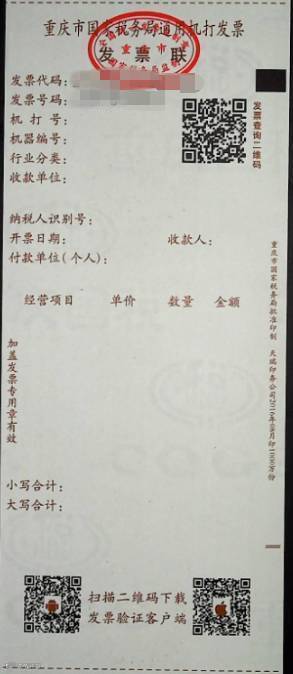 重庆市国家税务局通用机打发票
发票联
发票代码：
发票号码：
机打号：
机器编号：
行业分类：
收款单位：
发票查询二维码
纳税人识别号：
开票日期： 收款人：
付款单位(个人)：
经营项目 单价 数量 金额
加盖发票专用章有效
重庆市国家税务局批准印制 天瑞印务公司2016年08月印1000万份
小写合计：
大写合计：
扫描二维码下载
发票验证客户端